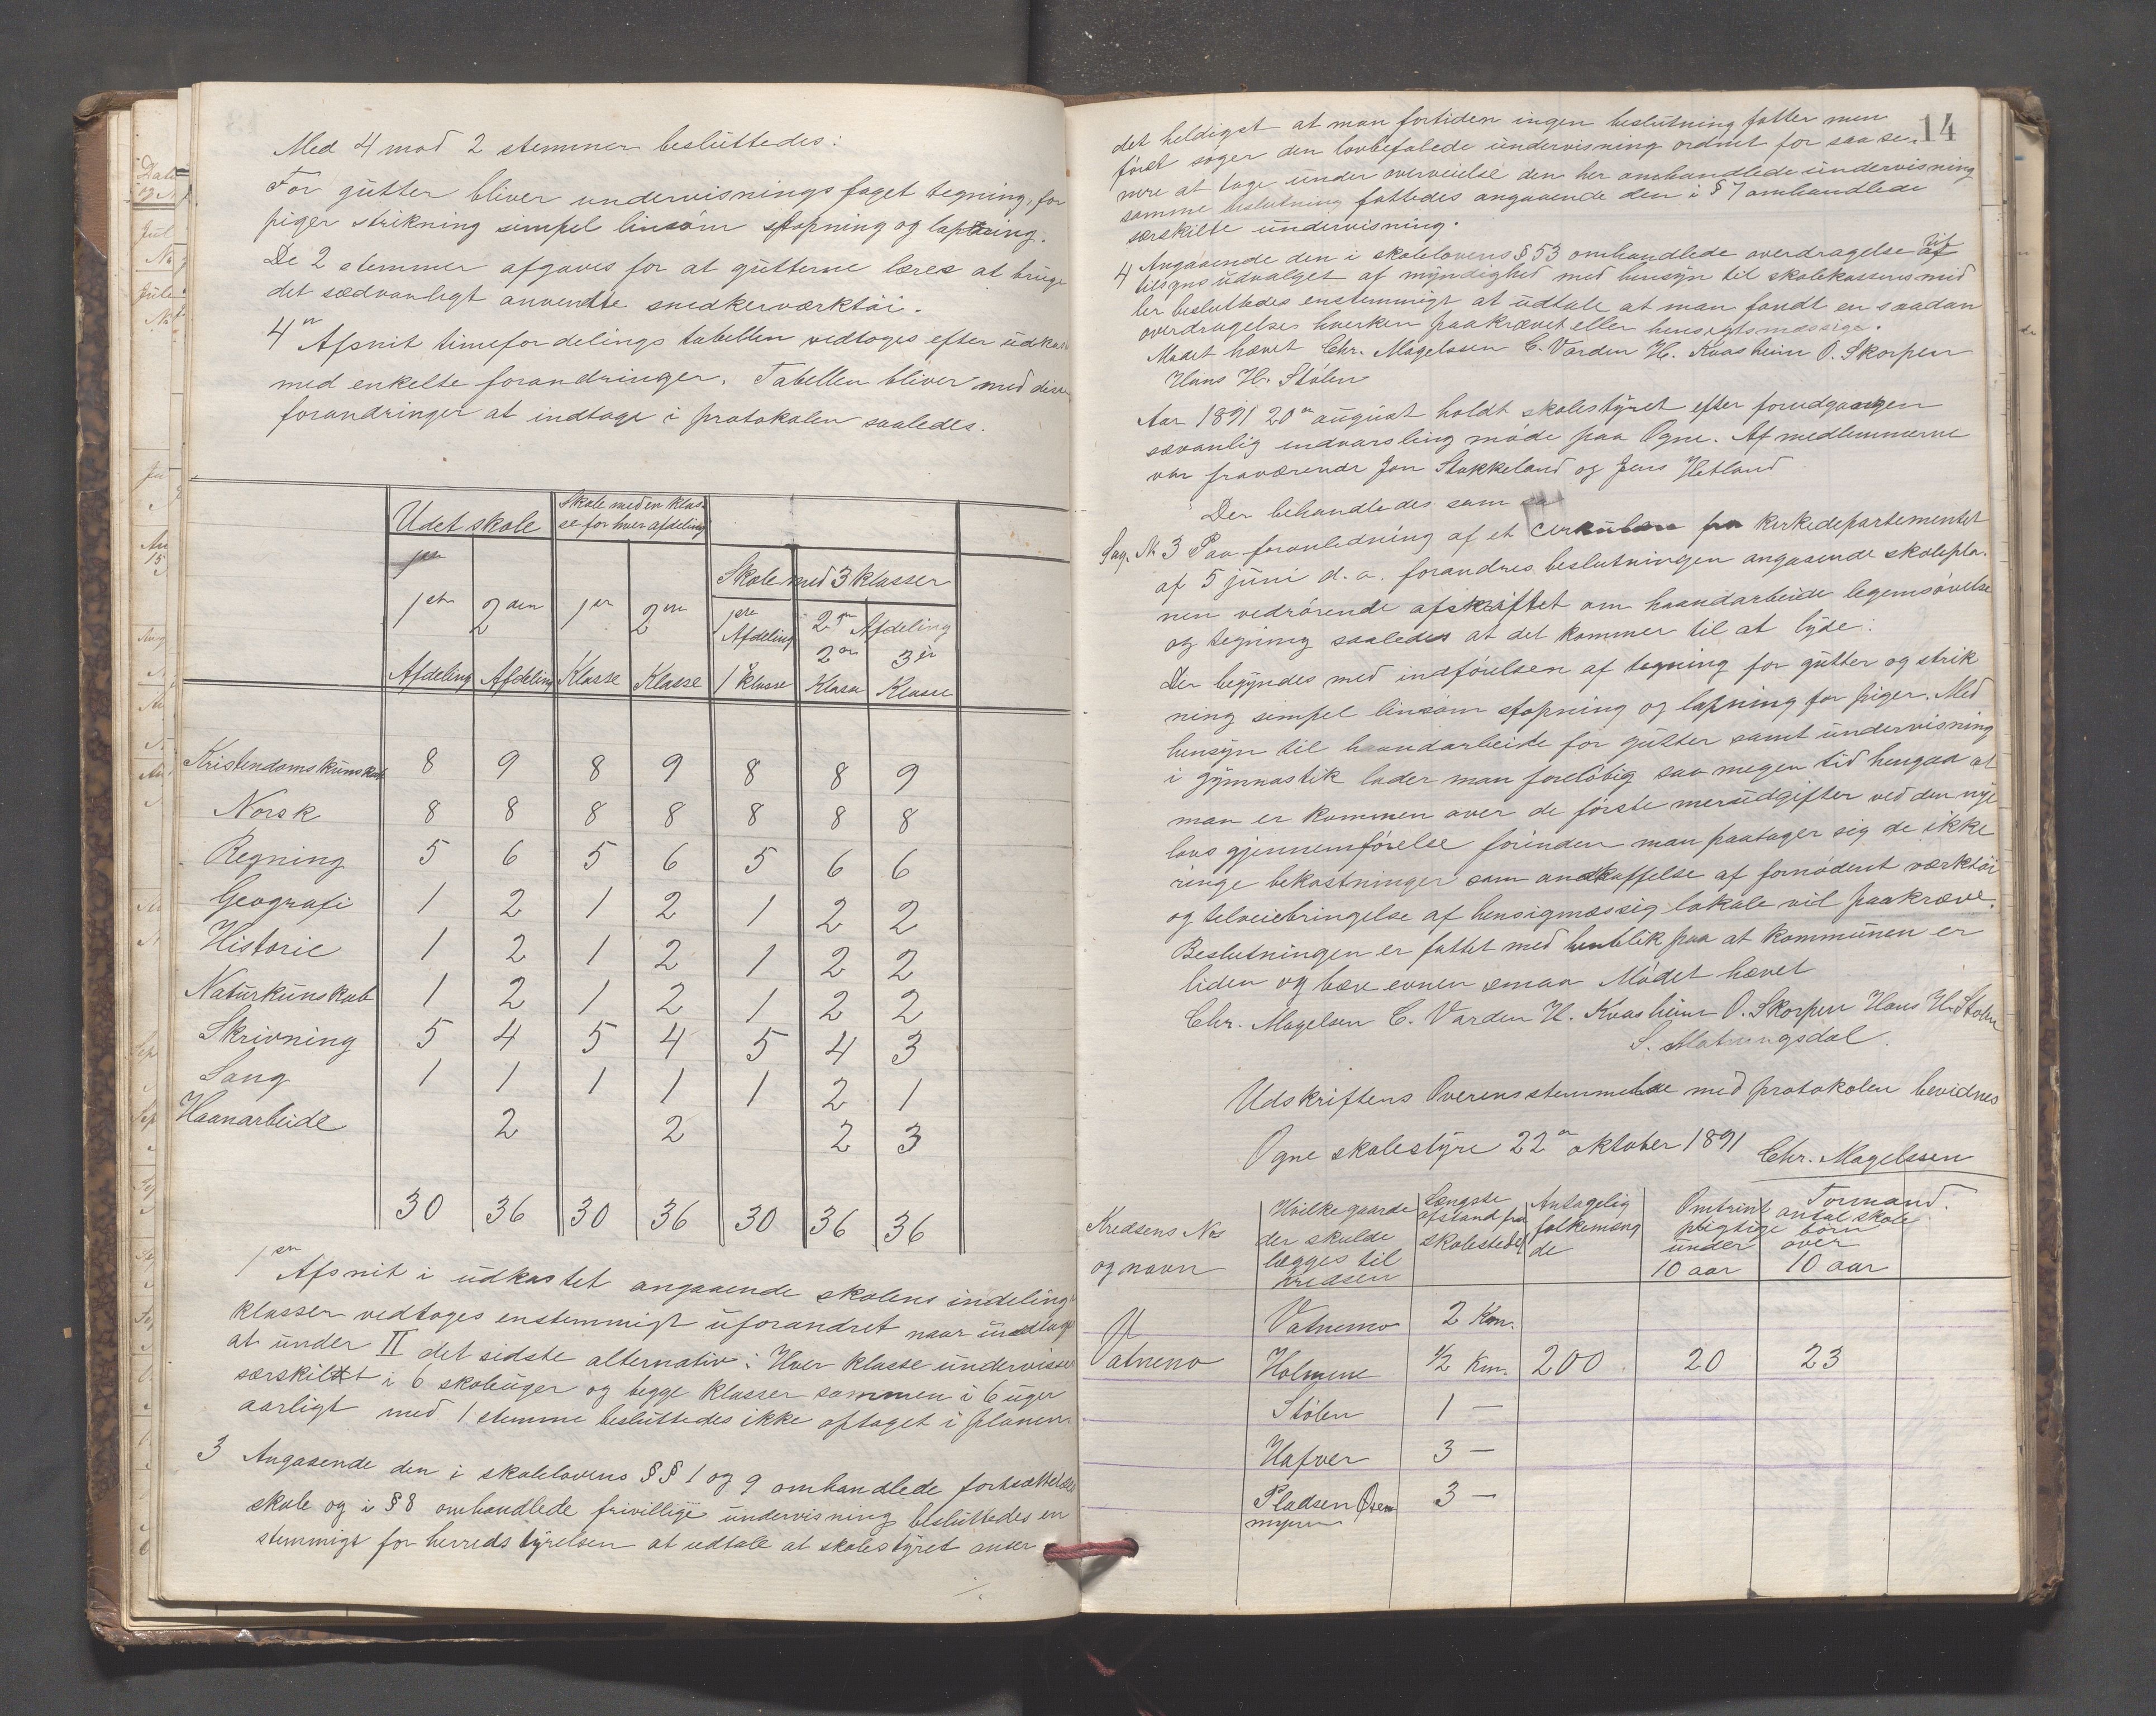 Med 4 mod 2 stemmer besluttedes:
For gutter bliver undervisningsfaget tegning, for
piger strikning simpel linsøm stopning og lapning.
De 2 stemmer afgaves for at gutterne læres at bruge
det sædvanligt anvendte snedkerværktøi.
4er Afsnit timefordelings tabellen vedtoges efter udkast
med enkelte forandringer. Tabellen bliver med disse
forandringer at indtage i protokolen saaledes.
Udet skole Skole med en klas-
se for hver afdeling
Skole med 3 klasser
1ste 2den 1er 2en 1ere Afdeling 2en Afdeling
Afdeling Afdeling Klasse Klasse 1e klasse 2en Klasse 3er Klasse
Kristendomskunskab 8 9 8 9 8 8 9
Norsk 8 8 8 8 8 8 8
Regning 5 6 5 6 5 6 6
Geografi 1 2 1 2 1 2 2
Historie 1 2 1 2 1 2 2
Naturkunskab 1 2 1 2 1 2 2
Skrivning 5 4 5 4 5 4 3
Sang 1 1 1 1 1 2 1
Haanarbeide 2 2 2 3
30 36 30 36 30 36 36
1en Afsnit i udkastet angaaende skolens indeling
klasser vedtoges enstemmigt uforandret naar undtages
at under II det sidste alternativ: Hver klasse undervises
særskilt i 6 skoleuger og begge klasser sammen i 6 uger
aarligt med 1 stemme besluttedes ikke optaget i planen.
3 Angaaende den i skolelovens §§ 1 og 9 omhandlede fortsættelses
skole og i § 8 omhandlede frivillige undervisning besluttedes en
stemmigt for herredstyrelsen at udtale at skolestyret anser
14
det heldigst at man fortiden ingen beslutning fatter men
først søger den lovbefalede undervisning ordnet for saa se-
nere at tage under overveielse den her omhandlede undervisning
samme beslutning fattedes angaaende den i § 7 omhandlede
særskilte undervisning.
4 Angaaende den i skolelovens § 53 omhandlede overdragelse til
tilsynsudvalget af myndighed med hensyn til skolekassens mid
ler besluttedes enstemmigt at udtale at man fandt en saadan
overdragelse hverken paakrævet eller hensigtsmæssige.
Mødet hævet Chr. Magelssen C. Varden H. Kvasheim O. Skorpen
Hans H. Stølen
Aar 1891 20en august holdt skolestyret efter forudgaaen
sævanlig indvarsling møde paa Ogne. Af medlemmerne
var fraværende Jon Stokkeland og Jens Hetland
Der behandledes som sa
Sag. N 3 Paa foranledning af et cerkulære fra Kirkedepartementet
af 5 juni d. a. forandres beslutningen angaaende skolepla-
nen vedrørende afskriftet om haandarbeide legemsøvelse
og tegning saaledes at det kommer til at lyde:
Der begyndes med indføielsen af tegning for gutter og strik
ning simpel linsøm stopning og lapning for piger. Med
hensyn til haandarbeide for gutter samt undervisning
i gymnastik lader man foreløbig saa megen tid hengaa at
man er kommen over de første merudgifter ved den nye
lovs gjennemførelse forinden man paatager sig de ikke
ringe bekostninger som anskaffelse af fornødent værktøi
og tilveiebringelse af hensigmæssig lokale vil paakræve.
Beslutningen er fattet med henblik paa at kommunen er
liden og bæreevnen smaa Mødet hævet
Chr. Magelsen C. Varden H. Kvasheim O. Skorpen Hans H. Stølen
S. Matningsdal.
Udskriftens Overensstemmelse med protokolen bevidnes
Ogne skolestyre 22en oktober 1891 Chr. Magelssen
Formand.
Kredsens No og navn Hvilke gaarde der skulde lægges til Kredsen Længste afstand fra skolestedet Antagelig folkemængde Omtrint antal skolepligtige børn under 10 aar over 10 aar
Vatnemo 2 Km.
Vatnemo Holmene 1/2 Km. 200 20 23
Stølen 1 —
Hafver 3 —
Pladsen 3 —